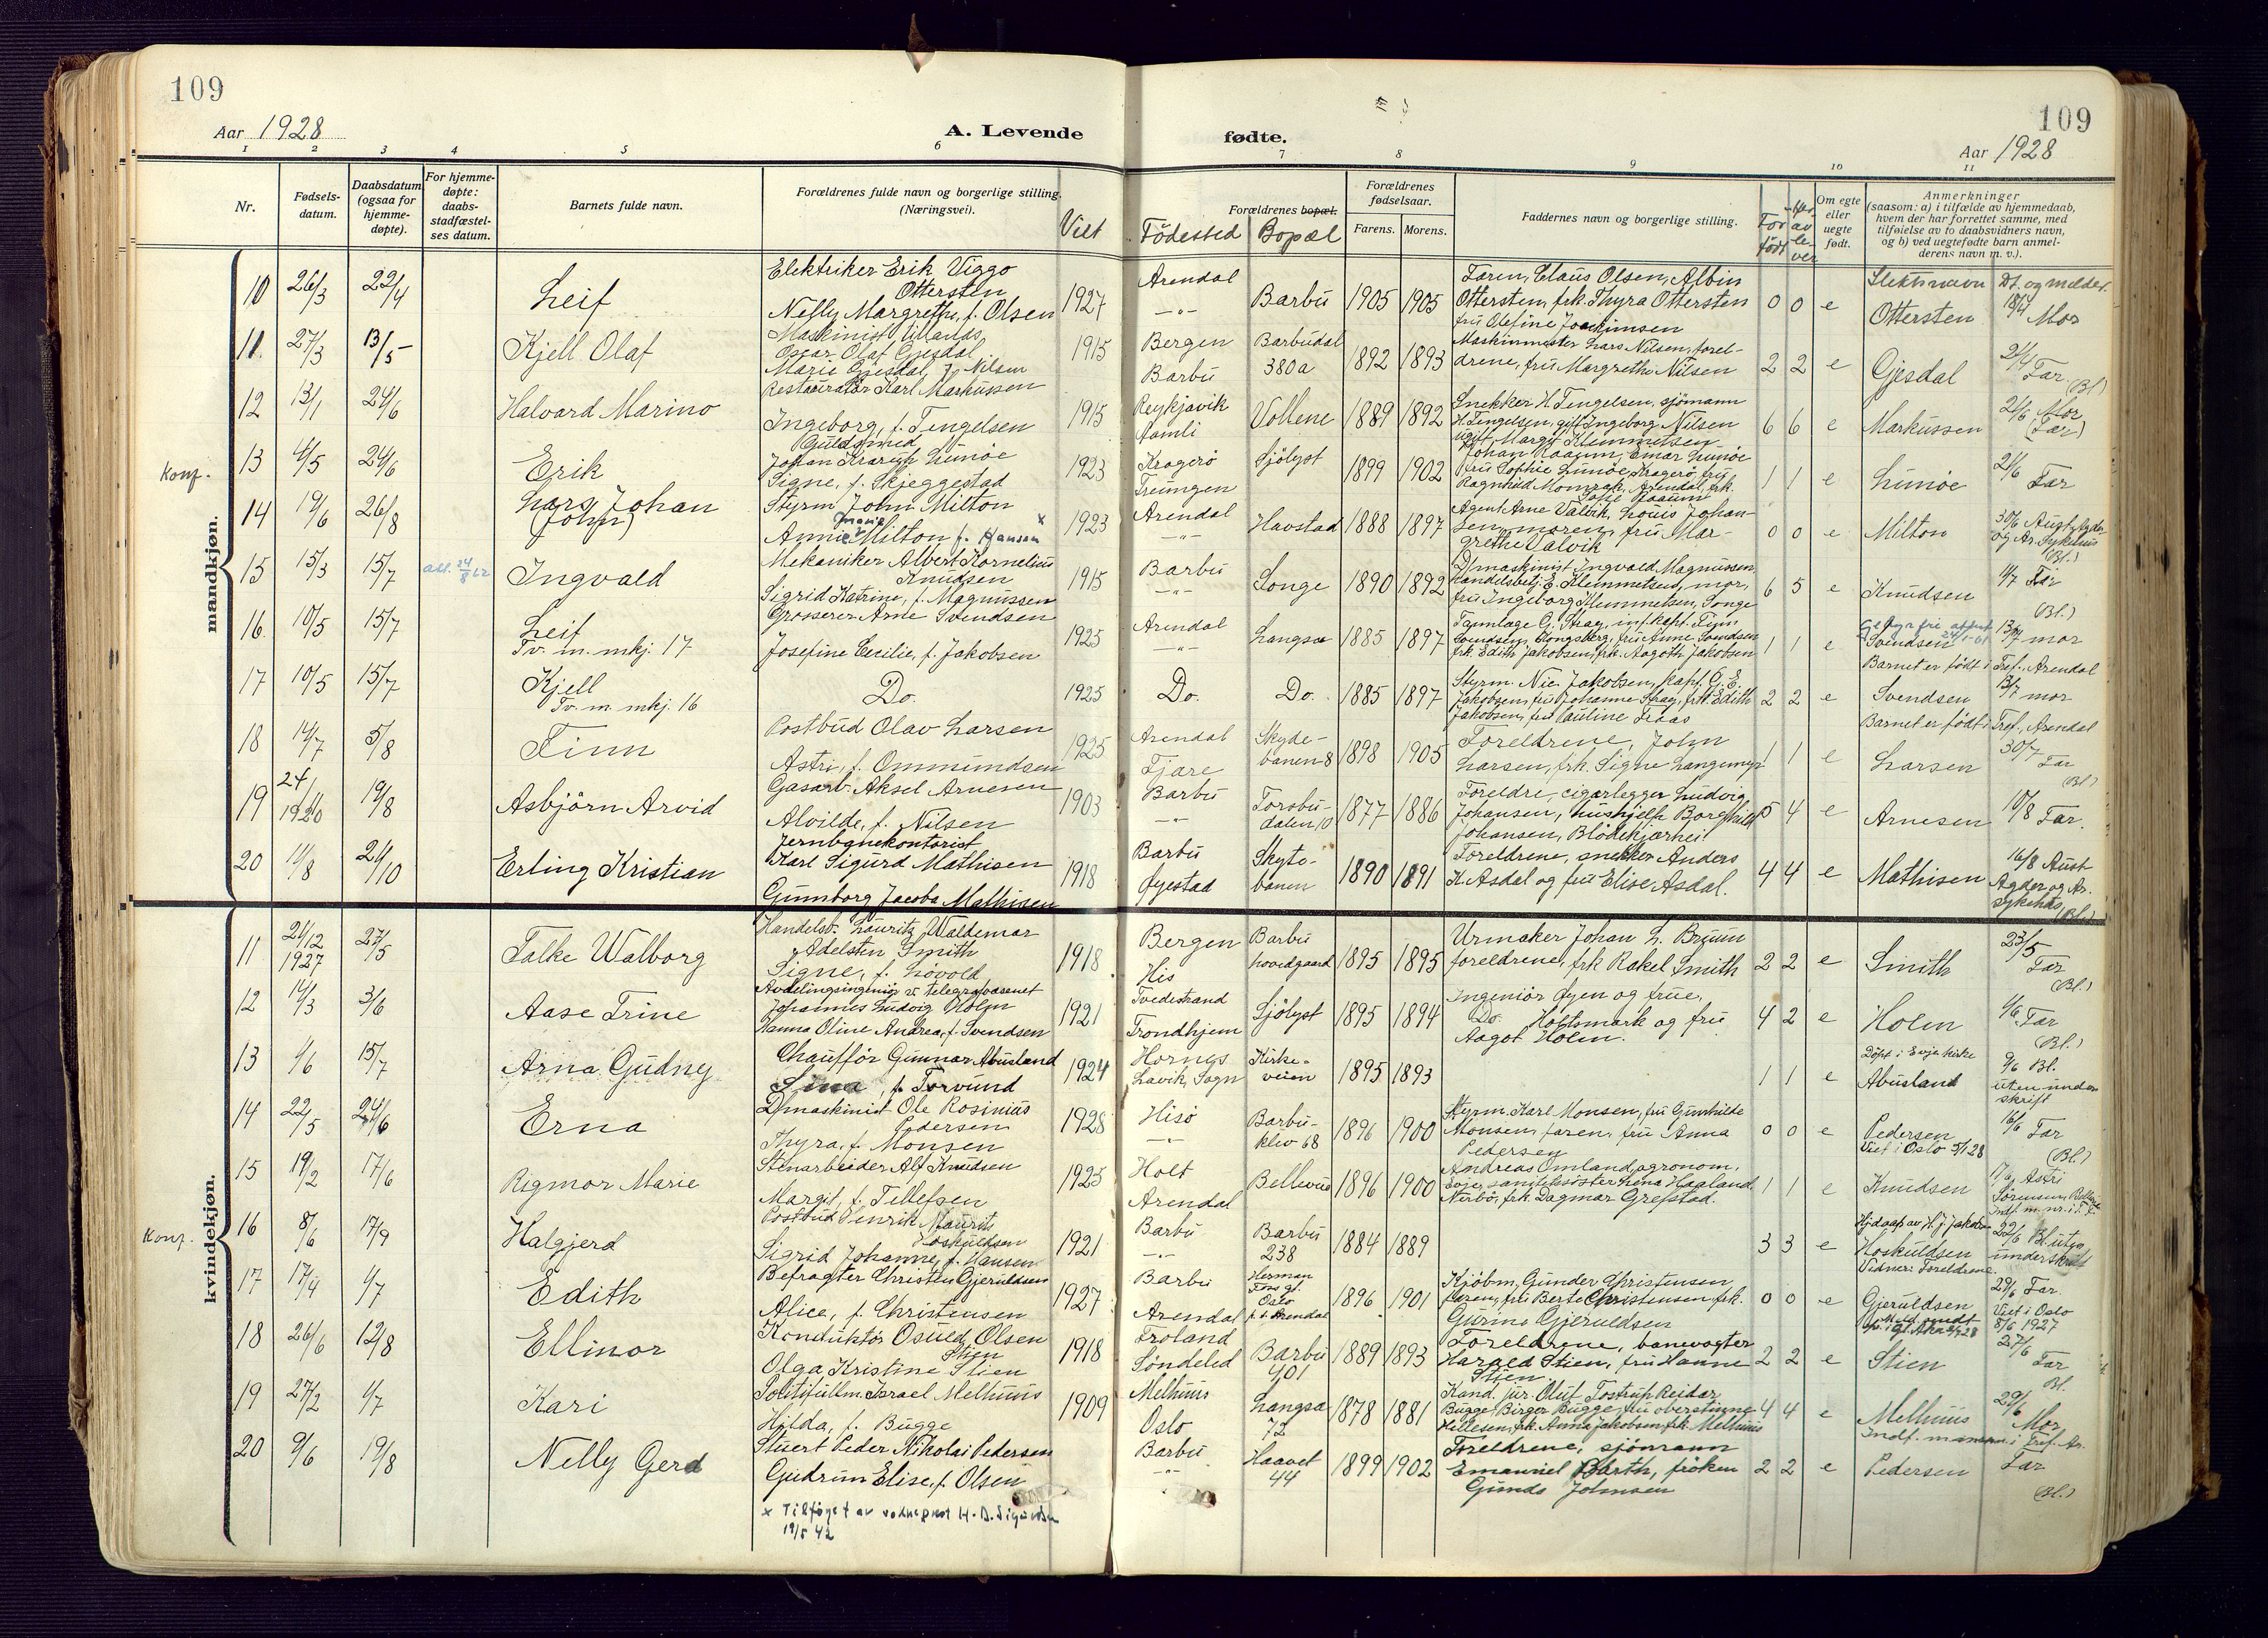 109
109
Aar 1928
A. Levende fødte.
Aar 1928
1 2 3 4 5 6 7 8 9 10 11
Nr.
Fødsels-
datum.
Daabsdatum
(ogsaa for
hjemme-
døpte).
For hjemme-
døpte:
daabs-
stadfæstel-
ses datum.
Barnets fulde navn.
Forældrenes fulde navn og borgerlige stilling.
(Næringsvei).
Viet
Forældrenes bopæl.
Födested
Bopæl
Forældrenes
fødselsaar.
Farens.
Morens.
Faddernes navn og borgerlige stilling.
Om egte
eller
uegte
født.
Anmerkninger
(saasom: a) i tilfælde av hjemmedaab,
hvem der har forrettet samme, med
tilføielse av to daabsvidners navn,
og b) ved uegtefødte barn anmel-
derens navn m. v.).
Slektsnavn Dt. og melder.
mandkjøn.
10 26/3 22/4 Leif
Elektriker Erik Viggo
Ottersten
Nelly Margrethe, f. Olsen
1927 Arendal
-"- Barbu 1905 1905
Faren, Claus Olsen, Albin
Ottersten, frk. Thyra Ottersten
fru Olefine Joackimsen
0 0 e Ottersten 18/4 Mor
11. 27/3 13/5 Kjell Olaf
Maskinist Utlands
Oscar Olaf Gjesdal
Marie Gjesdal, f. Nilsen
1915 Bergen
Barbu
Barbudal
380a
1892 1893
Maskinmester Lars Nilsen, forel-
drene, fru Margrethe Nilsen
2 2 e Gjesdal 21/4 Far (Bl.)
12 13/1 24/6 Halvard Marino
Restauratør Karl Markussen
Ingeborg, f. Tengelsen
1915 Reykjavik
Aamli
Vollene 1889 1892
Snekker H Tengelsen, sjömann
H Tengelsen, gift Ingeborg Nilsen
ugift Margit Klemmetsen
6 6 e Markussen 21/6 Mor
(Far)
konf.
13 4/5 24/6 Erik
Guldsmed
Johan Krarup Lunöe
Signe, f. Skjeggestad
1923 Kragerö
Treungen
Sjölyst 1899 1902
Johan Raaum, Einar Lunöe
fru Sophie Lunöe, Kragerö, fru
Ragnhild Momrak, Arendal, frk.
1 1 e Lunöe 21/6 Far
14 19/6 26/8 Lars Johan
(John)
Styrm John Milton
Annie Marie Milton f. Hansen x
1923 Arendal
-"- Havstad 1888 1897
Agent Arne Valvik, Louis Johan-
sen, moren, fru Mar-
grethe Valvik
0 0 e Milton 30/6 Aust-Agder
og Ar. Sykehus
(Bl.)
15 15/3 15/7 Ingvald
Mekaniker Albert Kornelius
Knudsen
Sigrid Katrine, f. Magnussen
1915 Barbu
-"- Songe 1890 1892
D/maskinist Ingvald Magnussen,
handelsbetj. E. Klemmetsen, mor,
fru Ingeborg Klemmetsen, Songe
6 5 e Knudsen 4/7 Far
(Bl.)
16. 10/5 15/7 Leif
Tv. m. mkj. 17
Grosserer Arne Svendsen
Josefine Cecilie, f. Jakobsen
1925 Arendal
-"- Langsæ 1885 1897
Svendsen, Kongsberg, fru Anne Svendsen
frk. Edith Jakobsen, frk. Aagoth Jakobsen
1 1 e Svendsen 13/7 mor
Barnet er född i Tref. Arendal
17 10/5 15/7 Kjell
Tv. m. mkj. 16
Do. 1925 Do. Do. 1885 1897
Styrm. Nic. Jakobsen, kapt. G. E.
Jakobsen, fru Johanne Stray, frk. Edith
Jakobsen, fru Pauline Traas
2 2 e Svendsen 13/7 mor
Barnet er född i Tref., Arendal
18 14/7 5/8 Finn
Postbud Olav Larsen
Astri, f. Ommundsen
1925 Arendal
Fjære
Skyde-
banen 8
1898 1905
Foreldrene, John
Larsen, frk. Signe Langemyr
1 1 e Larsen 30/7 Far
(Bl.)
19 24/11 1920 19/8 Asbjörn Arvid
Gasarb. Aksel Arnesen
Alvilde, f. Nilsen
1903 Barbu
-"-
Torsbu-
dalen 10
1877 1886
Foreldre, cigarlegger Ludvig
Johansen, hushjelp Borghild
Johansen, Blödekjærhei
5 4 e Arnesen 10/8 Far.
20 11/8 21/10 Erling Kristian
Jernbanekontorist
Karl Sigurd Mathisen
Gunnborg Jacoba Mathisen
1918 Barbu
Öyestad
Skyte-
banen
1890 1891
Foreldrene, snekker Anders
K. Asdal og fru Elise Asdal.
4 4 e Mathisen 16/8 Aust
Agder og Ar.
sykehus (Bl.)
kvindekjøn.
11 21/12 1927 27/5 Falke Walborg
Handelsb. Lauritz Waldemar
Adelsten Smith
Signe, f. Lövold
1918 Bergen
His
Barbu
hovedgaard
1895 1895
Urmaker Johan L. Bruun
foreldrene, frk Rakel Smith
2 2 e Smith 23/5 Far
(Bl.)
12 14/3 3/6 Aase Trine
Avdelingsingeniør v. telegrafvæsenet
Johannes Ludvig Holm
Hanna Oline Andrea, f. Svendsen
1921 Tvedestrand
Trondhjem
Sjölyst 1895 1894
Ingeniör Öyen og frue,
Do. Holtsmark og fru
Aagot Holm.
4 2 e Holm 4/6 Far
(Bl.)
13 1/6 15/7 Arna Gudney
Chaufför Gunnar Abusland
Sina, f. Torvund
1924 Hornes
Lavik, Sogn
Kirke-
veien
1895 1893
1 1 e Döpt i Evje kirke
Abusland 9/6 Bl.
uten under
skrift
14 22/5 24/6 Erna
D/maskinist Ole Rosinius
Pedersen
Thyra, f. Monsen
1928 Hisö
-"-
Barbu-
kleiv 68
1896 1900
Styrm. Karl Monsen, fru Gunhilde
Monsen, faren, fru Anna
Pedersen
0 0 e Pedersen 16/6 Far
Viet i Oslo 5/1 28 (Bl.)
15 19/2 17/6 Rigmor Marie
Stenarbeider Alf Knudsen
Margit, f. Tellefsen
1925 Holt
Arendal
Bellevue 1896 1900
Andreas Omland, agronom,
Evje, sanitetssöster Lena Haaland,
Nerbö, frk. Dagmar Grefstad.
1 1 e Knudsen Astri
Sörensen,
Konf.
16 8/6 17/9 Halgjerd
Postbud Henrik Maurits
Hoskuldsen
Sigrid Johanne, f. Hansen
1921 Barbu
-"-
Barbu
238
1884 1889
3 3 e Hoskuldsen 22/6 Bl. uten
underskrift
Vidner: Foreldrene.
17 17/4 1/7 Edith
Befragter Christen Gjeruldsen
Alice, f. Christensen
1927 Barbu
Arendal
Herman
Foss gt.
Oslo
p. t. Arendal
1896 1901
Kjöbm. Gunder Christensen,
faren, fru Berte Christensen, frk.
Gurine Gjeruldsen
0 0 e Gjeruldsen 29/6 Far.
Viet i Oslo
8/6 1927
18 26/6 12/8 Ellinor
Konduktör Osuld Olsen
Stien
Olga Kristine Stien
1918 Froland
Söndeled
Barbu
401
1889 1893
Foreldrene, banevogter
Harald Stien, fru Hanne
Stien.
2 2 e Stien 27/6 Far
Bl.
19 27/2 1/7 Kari
Politifullm. Israel Melhuus
Hilda, f. Bugge
1909 Melhuus
Oslo
Langsæ
72
1878 1881
Kand. jur. Oluf Tostrup Reidar
Bugge, Birger Bugge, fru oberstinne
Hellesen, frk. Anna Jakobsen, frk. Melhuus
4 4 e Melhuus 29/6 Mor
20 9/6 19/8 Nelly Gerd
Stuert Peder Nikolai Pedersen
Gudrun Elise, f. Olsen
Barbu
-"-
Haavet
44
1899 1902
Foreldrene, sjömann
Emanuel Barth, fröken
Gunda Johnsen
2 2 e Pedersen Far
(Bl.)
x Tilföyet av sokneprest H. D. Sigurdsen
19/5 42